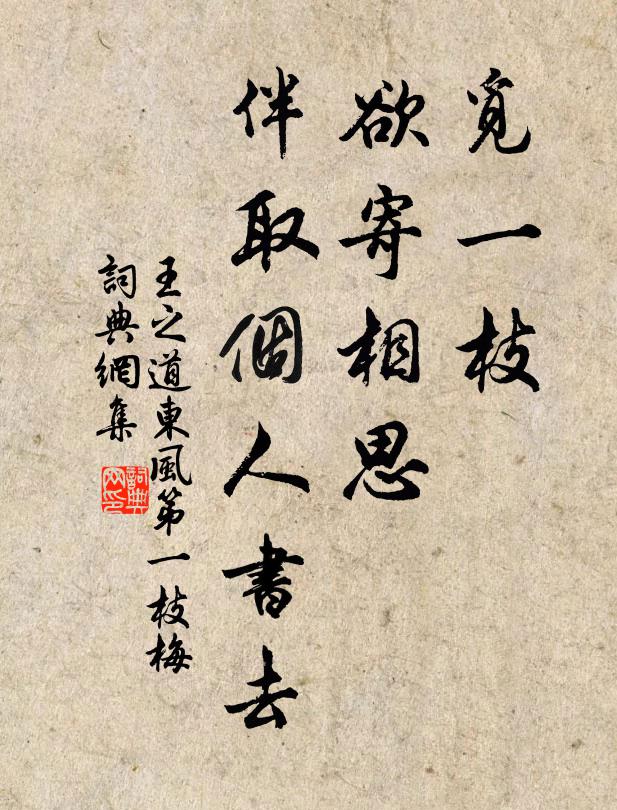 覓一枝
欲寄相思
伴取個人書去
王之道東風第一枝梅
詞典網集
詞典
网印